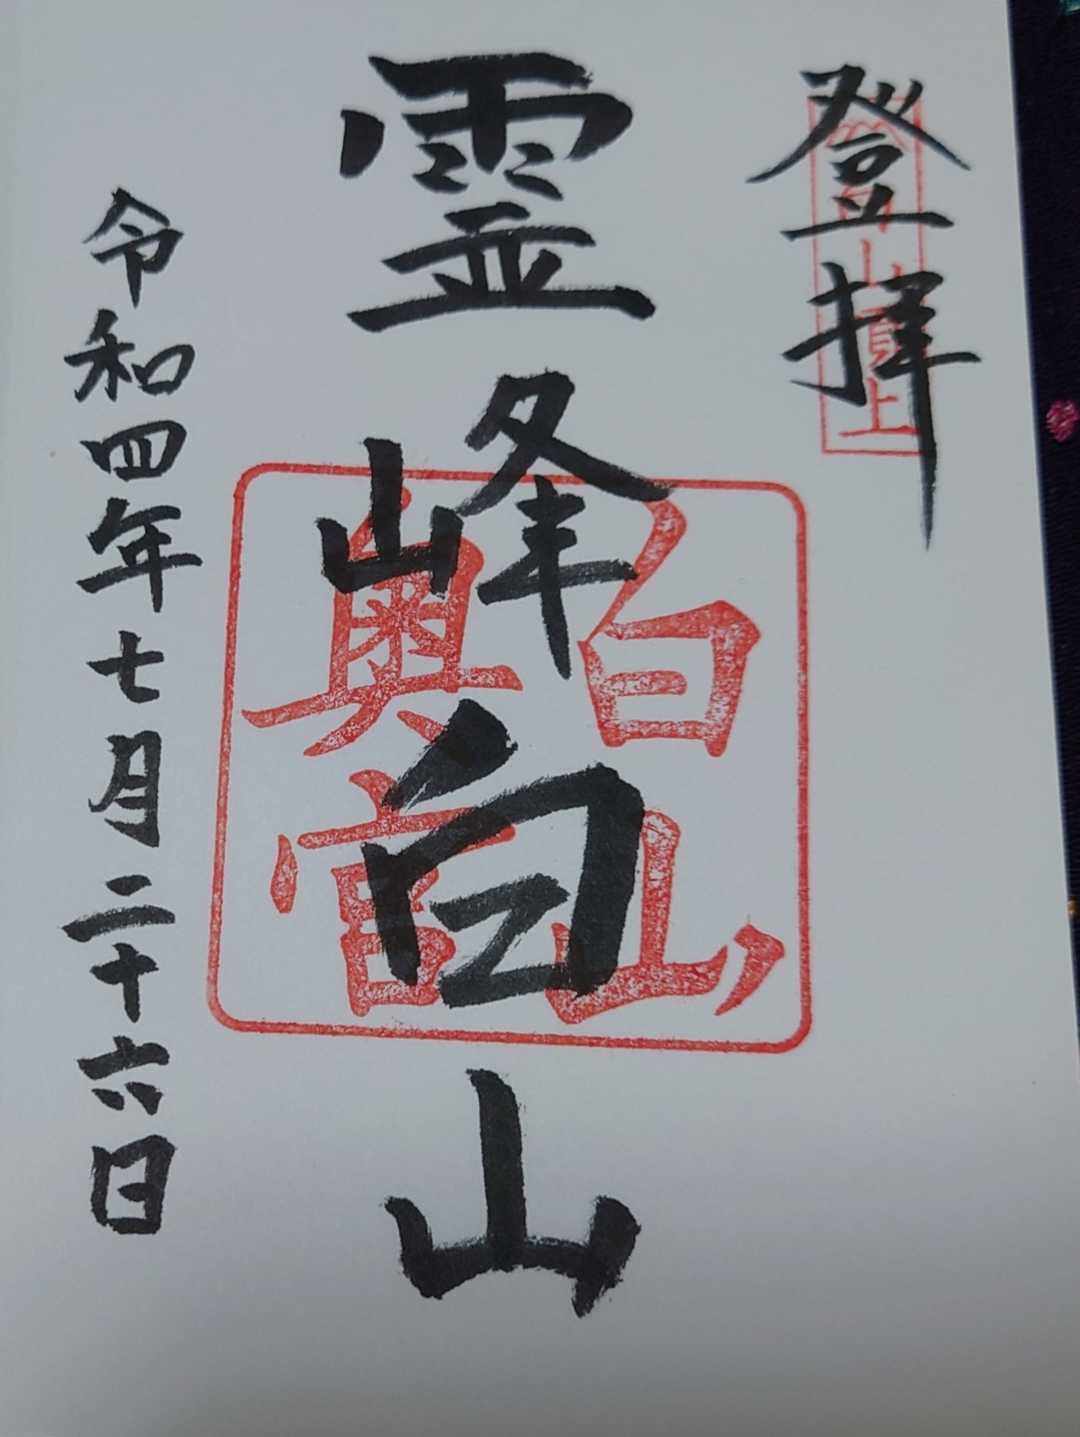 登拝
白山頂上
霊峰白山
白山
奥宮
令和四年七月二十六日